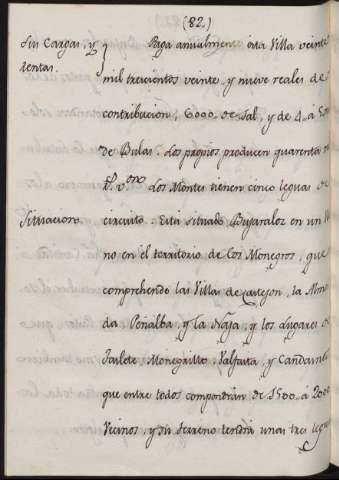 (82.)
Sus Cargas, y
rentas.
Paga anualmente esta Villa veinte
mil trecientos veinte, y nueve reales de
contribucion, 6000, de sal, y de 4. a
de Bulas. Los propios producen quarenta
Los Montes tienen cinco leguas de
Situacion
circuito. Esta situado Bujaraloz en un
no en el territorio de Los Monegros, que
comprehende las Villas de Castejon, la Almo
da Peñalba, y la Naja, y los Lugares de
Farlete, Monegrillo, Valfarta, y Candasn
que entre todos compondran de 1500. á 2000
Vecinos, y su terreno tendrá unas tres leguas